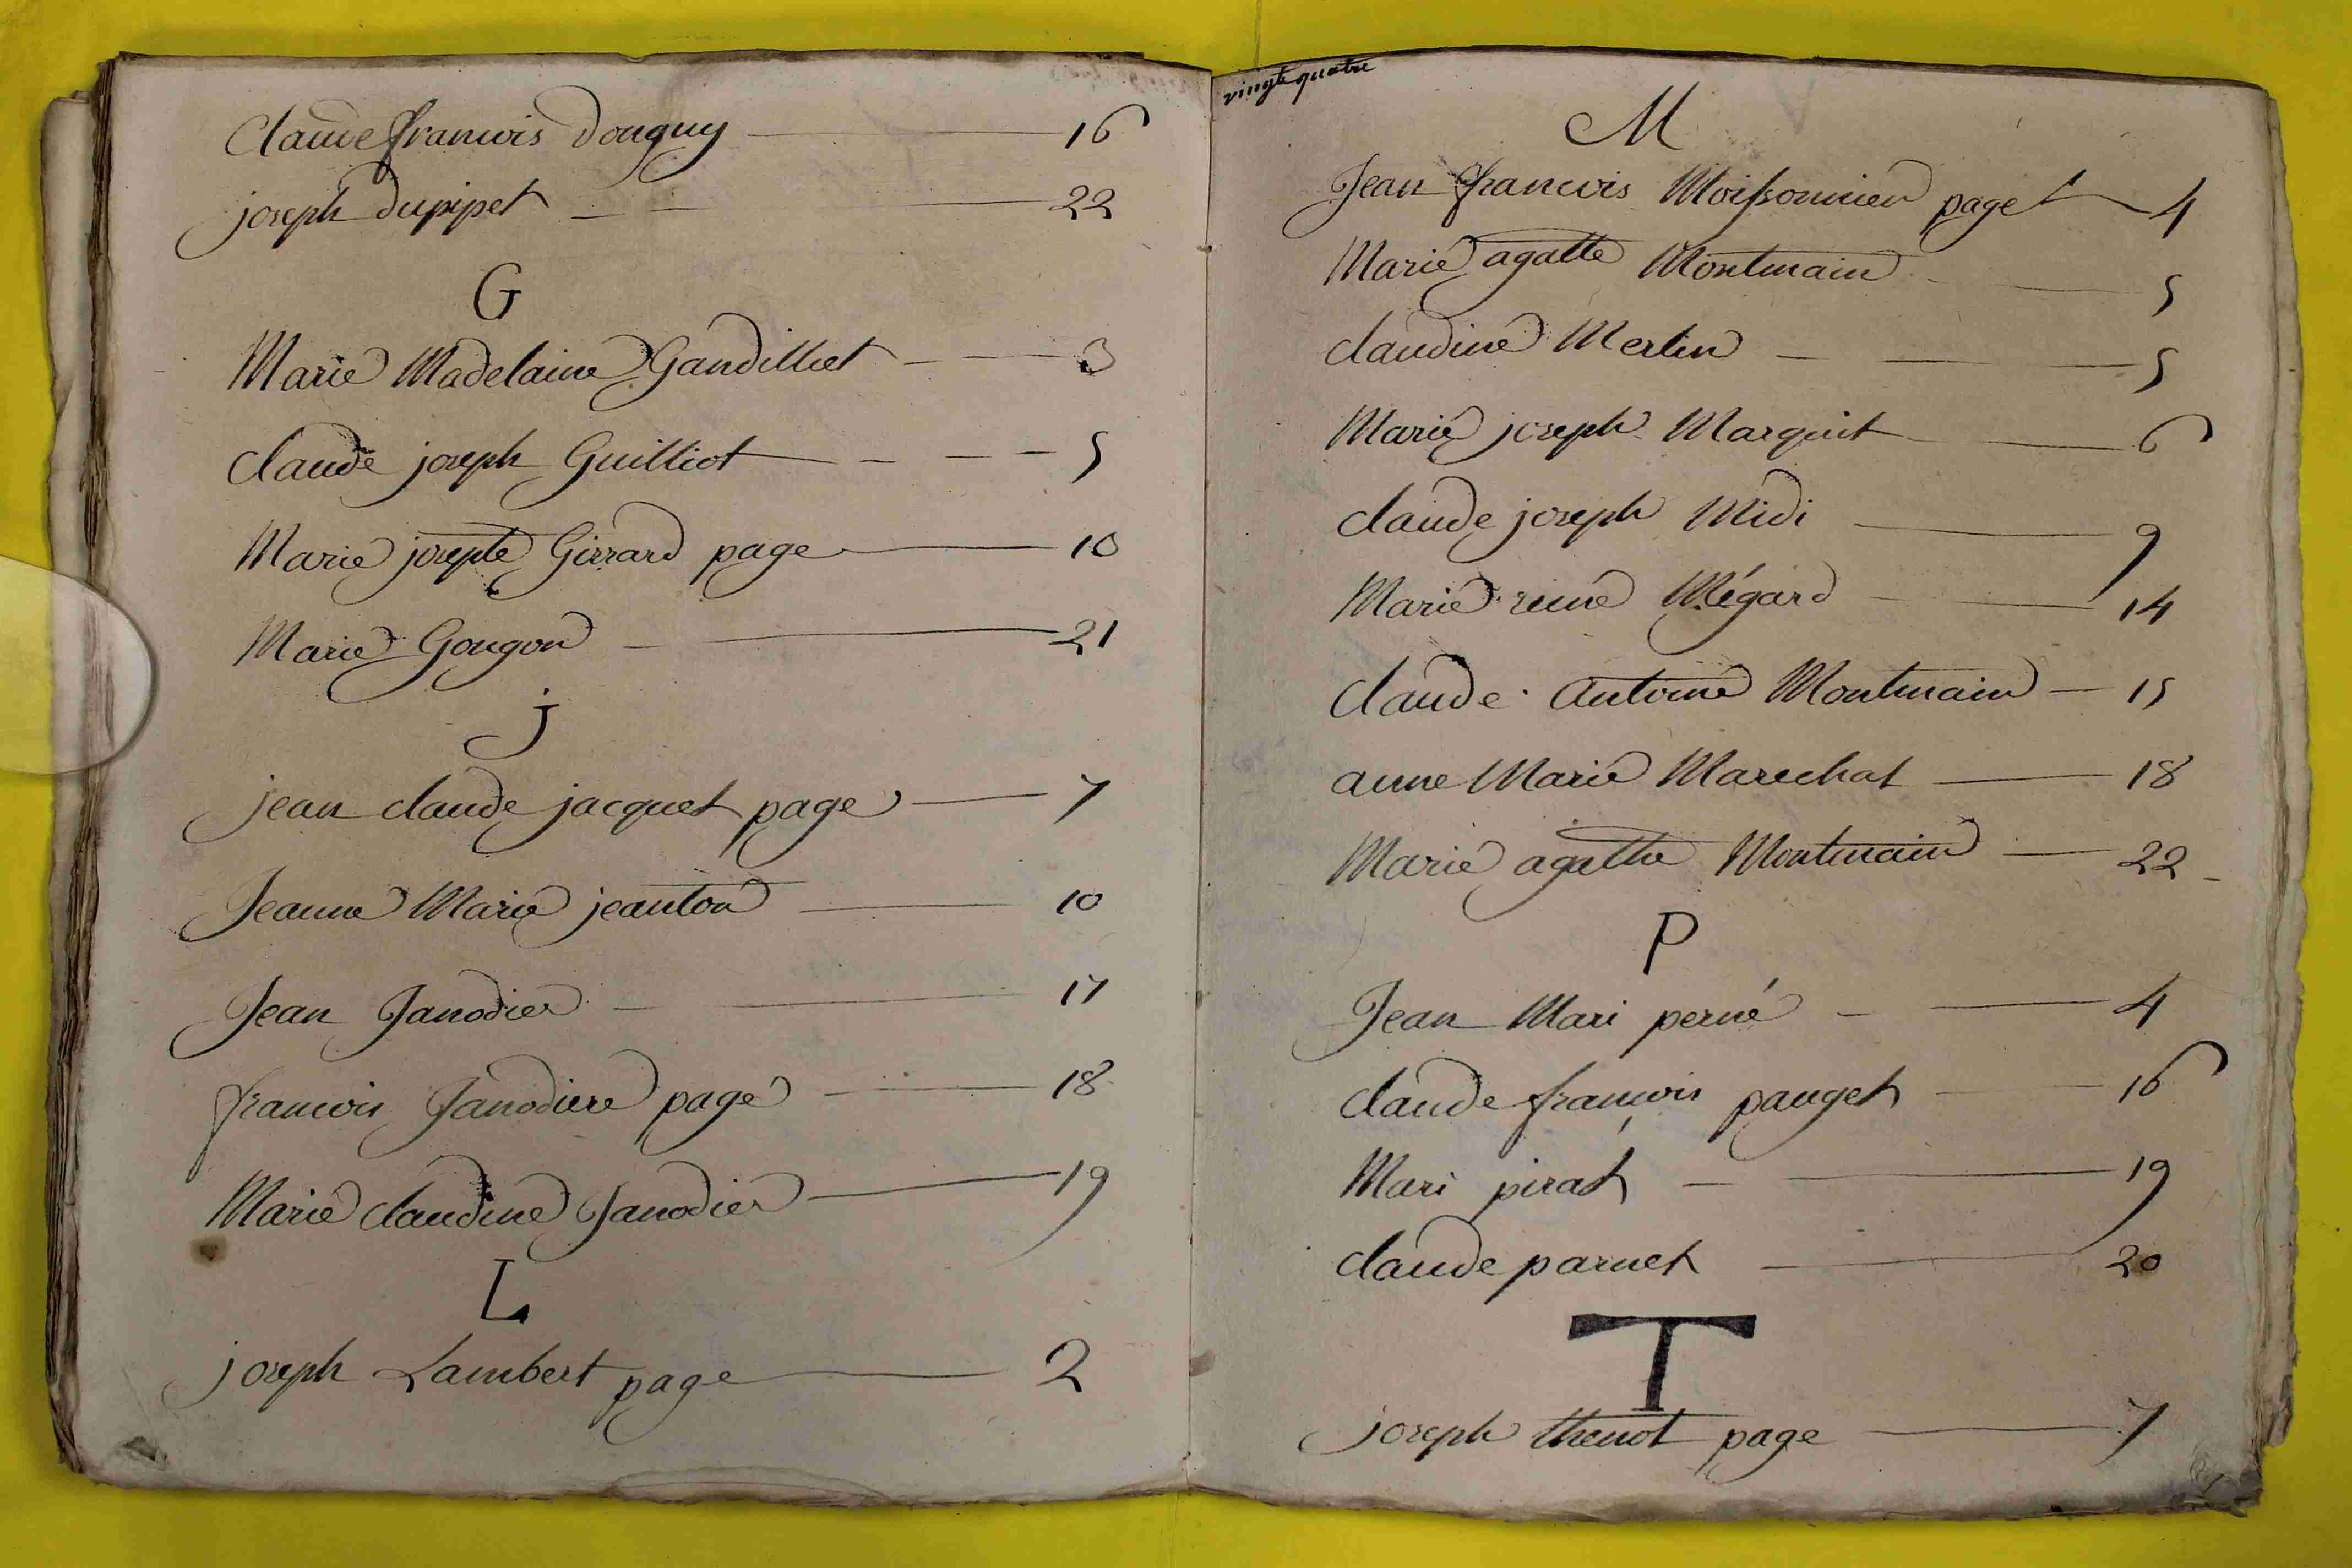 Claude francois Douguy 16
joseph Dupipet 22
G
Marie Madelaine Gandilliet 3
Claude joseph Guilliot 5
Marie josepte Girrard page 10
Marie Gougon 21
j
jean claude jacquet page 7
Jeanne Marie jeanton 10
Jean Janodier 17
francois Janodiere page 18
Marie claudine Janodier 19
L
joseph Lambert page 2
vingt quatre
M
Jean francois Moissonnier page 4
Marie agatte Montmain 5
claudine Merlin 5
Marie joseph Marquit 6
claude joseph Midi 9
Marie reine Mégard 14
claude antoine Montmain 15
anne Marie Marechal 18
Marie agathe Montmain 22
P
Jean Mari perné 4
claude françois pauget 16
Mari pirat 19
claude parnet 20
T
joseph thenot page 7